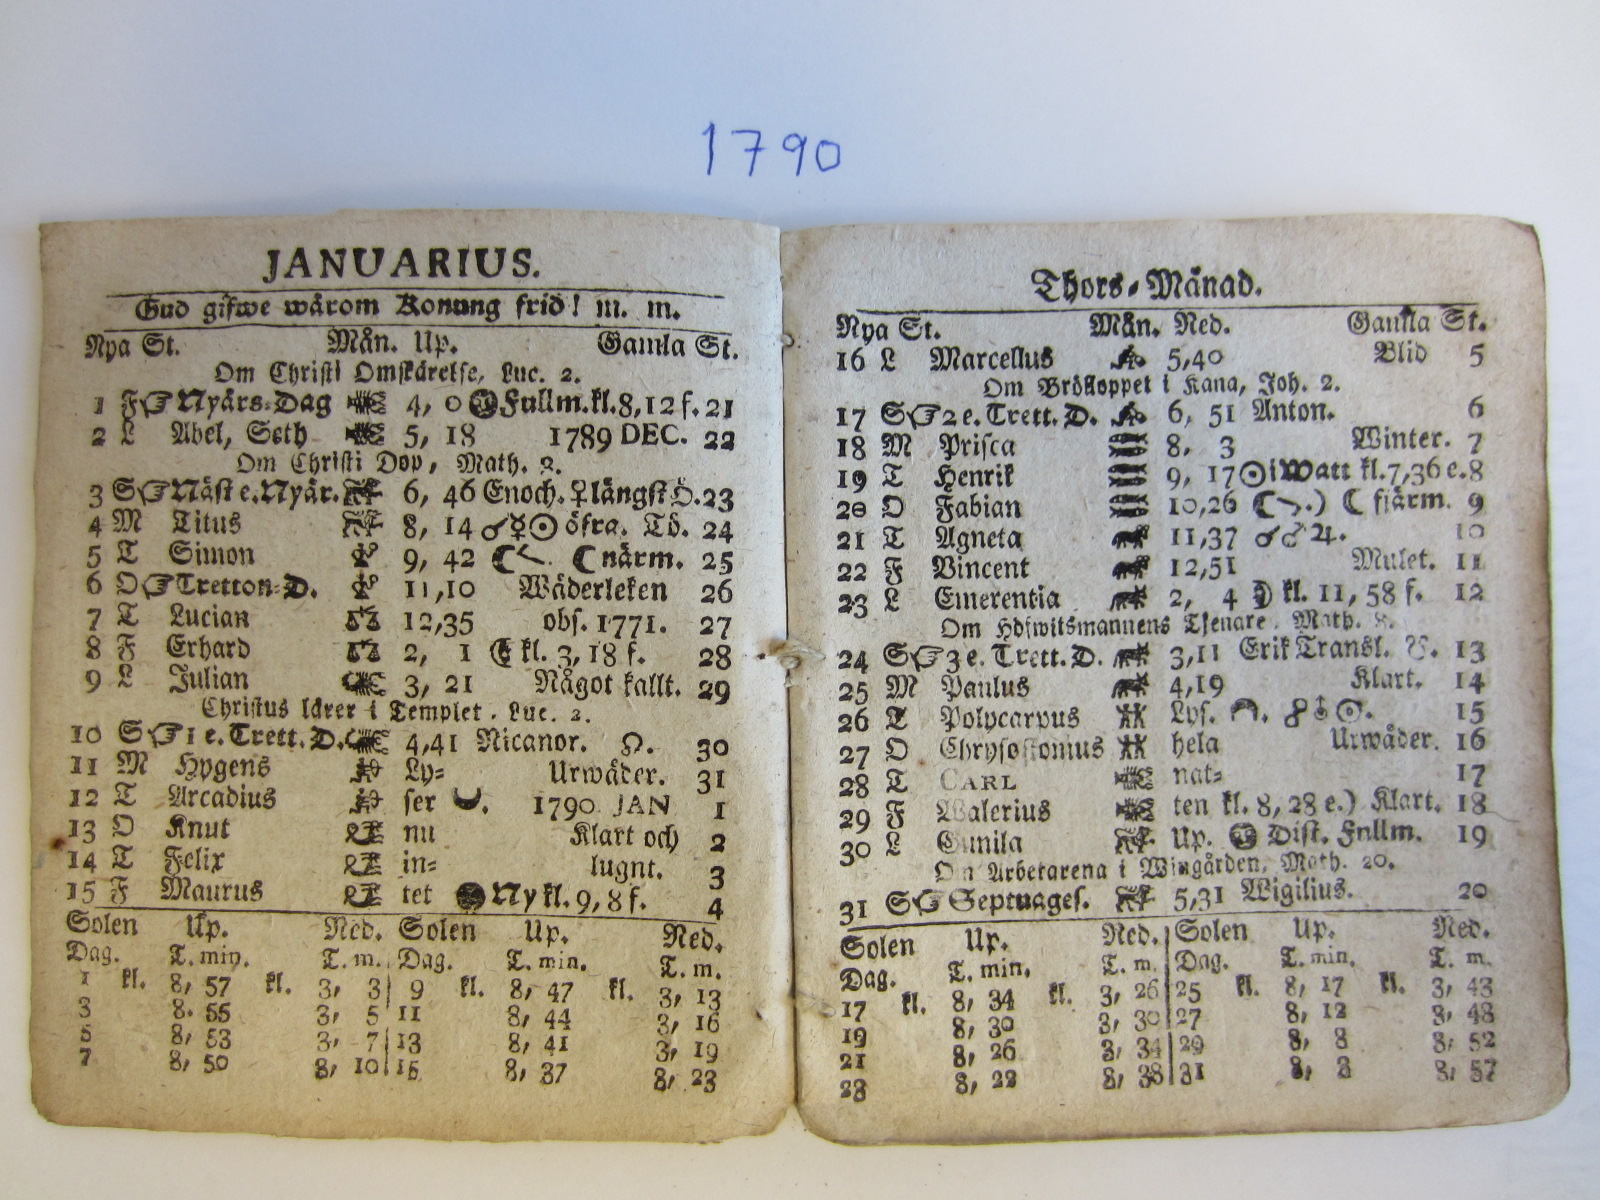 1790
JANUARIUS.
Gud gifwe wårom Konung frid! m. m.
Nya St. Mån. Up. Gamla St.
Om Christi Omskärelse, Luc. 2.
1 F Nyårs-Dag 4, 0 Fullm. kl. 8, 12 f. 21
2 L Abel, Seth 5, 18 1789 DEC. 22
Om Christi Dop, Math. 3.
3 S Näst e. Nyår. 6, 46 Enoch. ♀ längst Ö. 23
4 M Titus 8, 14 ☌ ☿ ☉ öfra. Tö. 24
5 T Simon 9, 42 ☾ närm. 25
6 O Tretton-D. 11,10 Wäderleken 26
7 T Lucian 12,35 obs. 1771. 27
8 F Erhard 2, 1 ☾ kl. 3, 18 f. 28
9 L Julian 3, 21 Något kallt. 29
Christus lärer i Templet. Luc. 2.
10 S 1 e. Trett. D. 4,41 Nicanor. ☊. 30
11 M Hygens Ly= Urwäder. 31
12 T Arcadius ser . 1790 JAN 1
13 O Knut nu Klart och 2
14 T Felix in= lugnt. 3
15 F Maurus tet Ny kl. 9, 8 f. 4
Solen Up. Ned. Solen Up. Ned.
Dag. T. min. T. m. Dag. T. min. T. m.
1 kl. 8, 57 kl. 3, 3 9 kl. 8, 47 kl. 3, 13
3 8. 55 3, 5 11 8, 44 3, 16
5 8, 53 3, 7 13 8, 41 3, 19
7 8, 50 3, 10 15 8, 37 3, 23
Thors-Månad.
Nya St. Mån. Ned. Gamla St.
16 L Marcellus 5,40 Blid 5
Om Bröllopet i Kana, Joh. 2.
17 S 2 e. Trett. D. 6, 51 Anton. 6
18 M Prisca 8, 3 Winter. 7
19 T Henrik 9, 17 ☉ i Watt kl. 7,36 e. 8
20 O Fabian 10,26 ☾ .) ☾ fjärm. 9
21 T Agneta 11,37 ☌ ♂ ♃. 10
22 F Vincent 12,51 Mulet. 11
23 L Emerentia 2, 4 ☽ kl. 11, 58 f. 12
Om Höfwitsmannens Tjenare. Math. 8.
24 S 3 e. Trett. D. 3,11 Erik Transl. 13
25 M Paulus 4,19 Klart. 14
26 T Polycarpus Lys. . ☍ ♅ ☉. 15
27 O Chrysostomus hela Urwäder. 16
28 T CARL nat= 17
29 F Walerius ten kl. 8, 28 e.) Klart. 18
30 L Gunila Up. Dist. Fullm. 19
Om Arbetarena i Wingården, Math. 20.
31 S Septuages. 5,31 Wigilius. 20
Solen Up. Ned. Solen Up. Ned.
Dag. T. min. T. m. Dag. T. min. T. m.
17 kl. 8, 34 kl. 3, 26 25 kl. 8, 17 kl. 3, 43
19 8, 30 3, 30 27 8, 12 3, 48
21 8, 26 3, 34 29 8, 8 3, 52
23 8, 22 3, 38 31 8, 3 3, 57